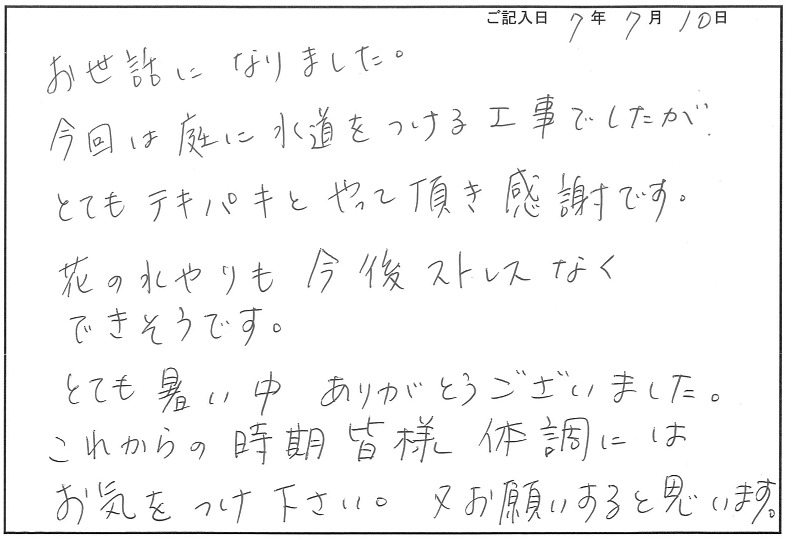 ご記入日 7年 7月 10日
お世話に なりました。
今回は庭に水道をつける工事でしたが
とてもテキパキとやって頂き感謝です。
花の水やりも今後ストレスなく
できそうです。
とても暑い中 ありがとうございました。
これからの時期皆様 体調には
お気をつけ下さい。又お願いすると思います。